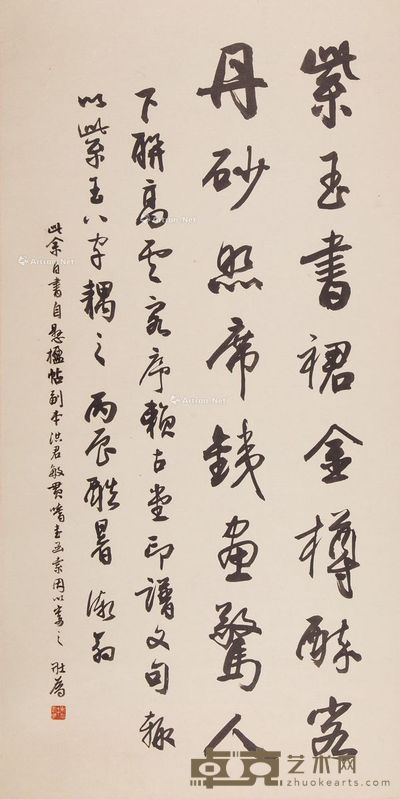 紫玉書裙金樽酔客
丹砂照席鐵畫驚人
下聯高雲客序賴古堂印譜文句輒
以紫玉八字耦之丙辰酷暑漱翁
此余自書自懸楹帖副本洪君敏貫嗜書函索因以
之 壯為
卓克艺术网
www.zhuokearts.com